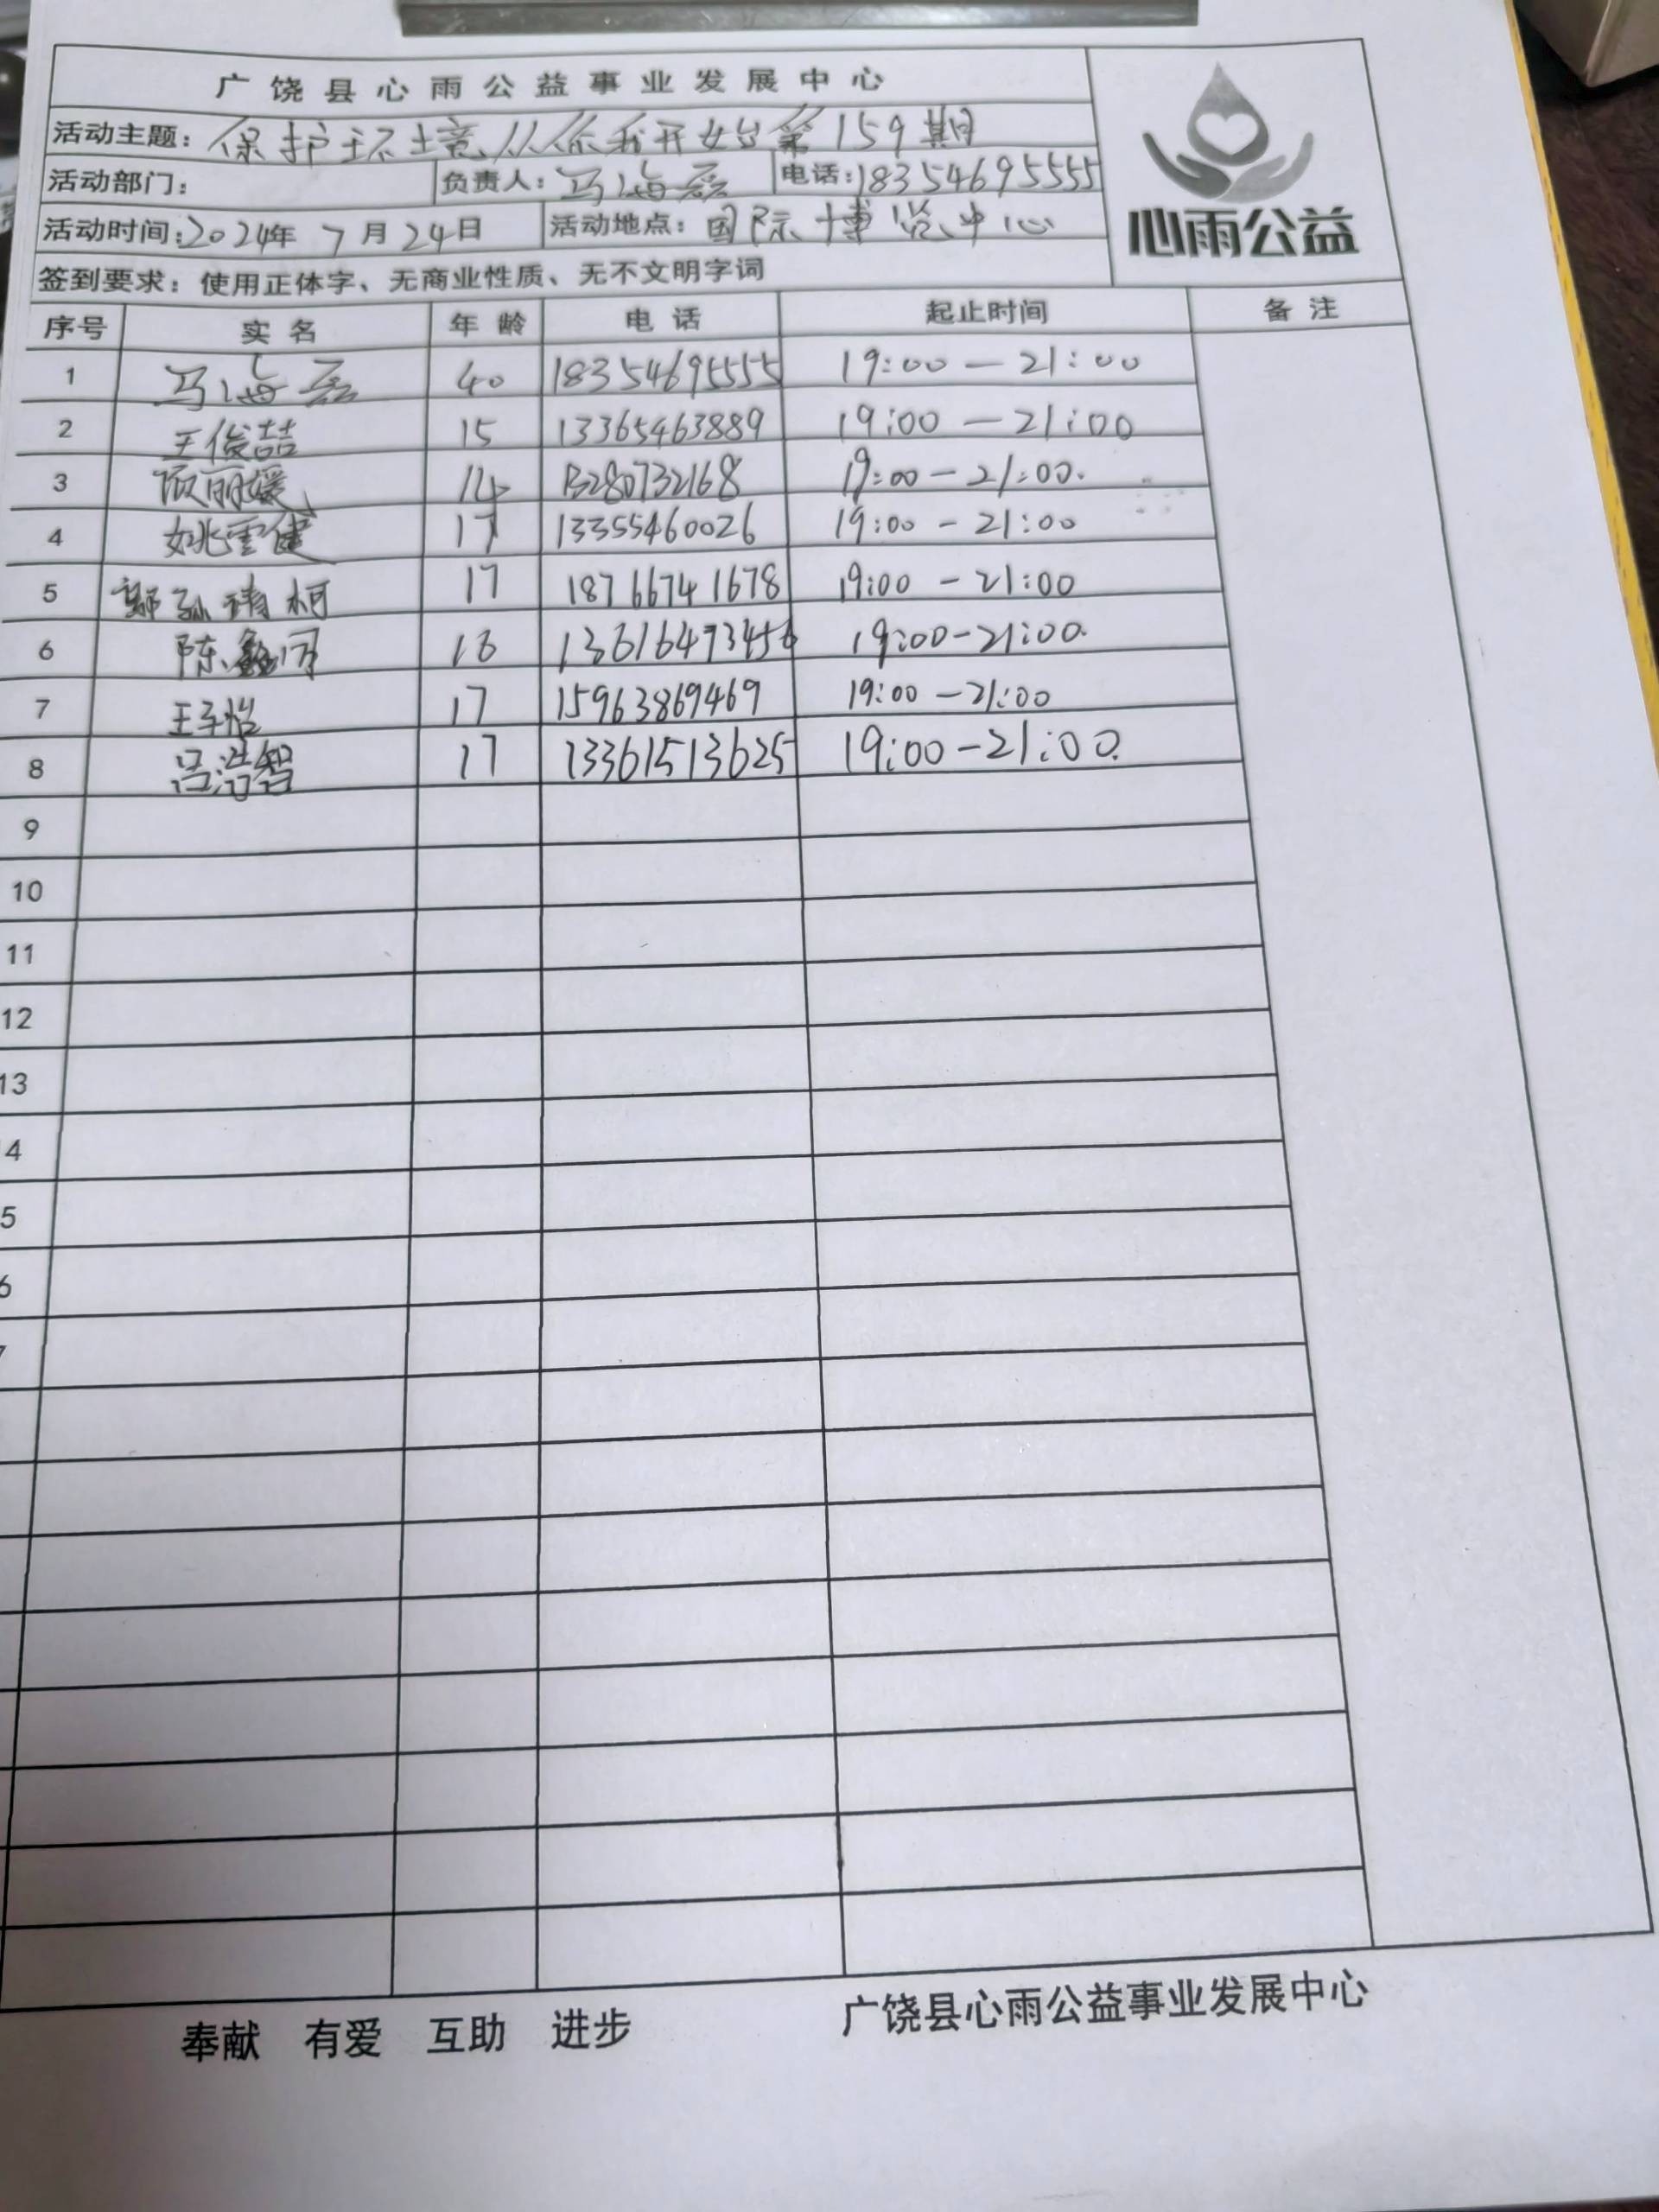 广饶县心雨公益事业发展中心
活动主题：保护环境从你我开始第159期
活动部门： 负责人：马海磊 电话：18354695555
活动时间：2024年7月24日 活动地点：国际博览中心
心雨公益
签到要求：使用正体字、无商业性质、无不文明字词
序号 实名 年龄 电话 起止时间 备注
1 马海磊 40 18354695555 19:00—21:00
2 王俊喆 15 13365463889 19:00—21:00
3 顾丽媛 14 13280732168 19:00-21:00.
4 姚雪健 17 13355460026 19:00-21:00
5 郭孙靖柯 17 18766741678 19:00-21:00
6 陈鑫 16 19:00-21:00.
7 王子怡 17 15963869469 19:00-21:00
8 吕浩智 17 13361513625 19:00-21:00.
9
10
11
12
13
4
5
6
7
奉献 有爱 互助 进步 广饶县心雨公益事业发展中心